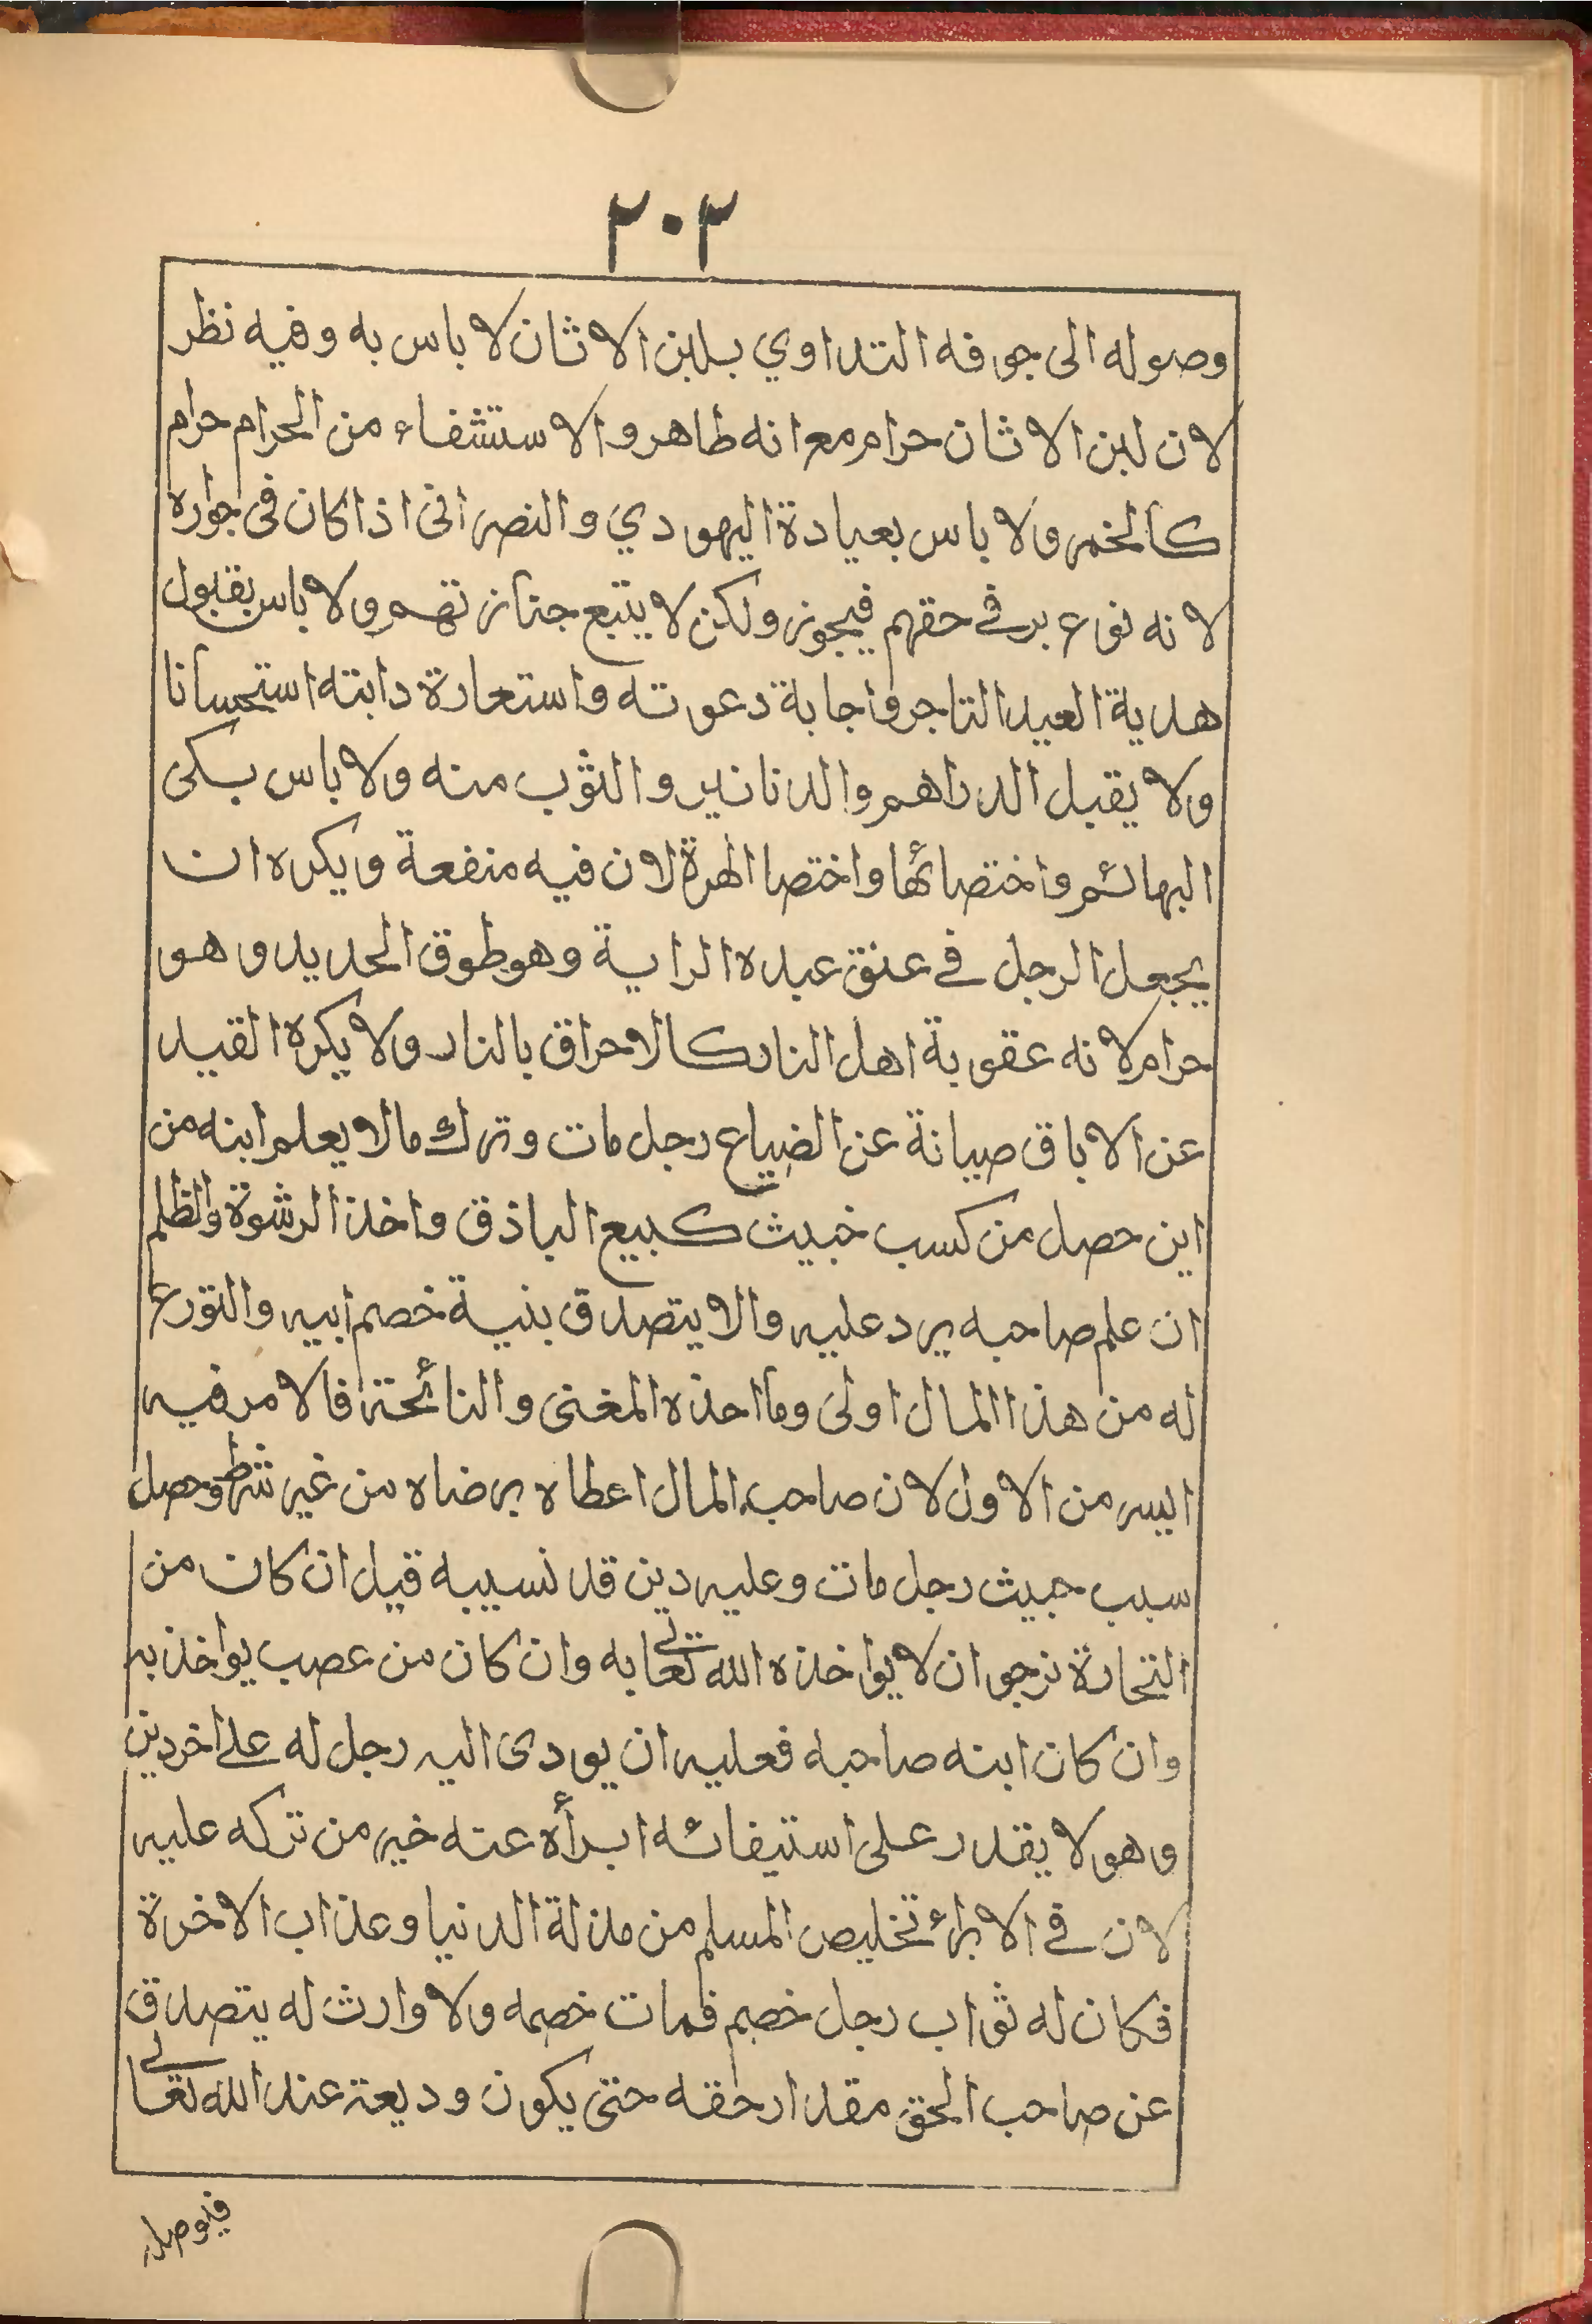 ٢٠٢
وصوله الى جوفه التداوي بلبن الاثان لا باس به وفيه نظر
لان لبن الاثان حرام مع انه طاهر والاستشفاء من الحرام حرام
كالخمر ولا باس بعيادة اليهودي والنصرانى اذا كان فى جواره
لانه نوع بر في حقهم فيجوز ولكن لا يتبع جنازتهم ولا باس بقبول
هدية العبد التاجر واجابة دعوته واستعارة دابته استحسانا
ولا يقبل الدراهم والدنانير والثوب منه ولا باس بكى
البهائم واختصائها واختصا الهرة لان فيه منفعة ويكره ان
يجعل الرجل في عنق عبده الراية وهو طوق الحديد وهو
حرام لانه عقوبة اهل النار كالاحراق بالنار ولا يكره القيد
عن الاباق صيانة عن الضياع رجل مات وترك مالا يعلم ابنه من
اين حصل من كسب خبيث كبيع الباذق واخذ الرشوة والظلم
ان علم صاحبه يرد عليه والا يتصدق بنية خصم ابيه والتورع
له من هذا المال اولى وما احذه المغنى والنائحة فالامر فيه
ايسر من الاول لان صاحب المال اعطاه برضاه من غير شرط وحصل
سبب خبيث رجل مات وعليه دين قد نسيبه قيل ان كان من
التجارة نرجو ان لا يواخذه الله تعالى به وان كان من عصب يواخذ به
وان كان ابنه صاحبه فعليه ان يودى اليه رجل له على اخر دين
وهو لا يقدر على استيفائه ابرأه عنه خير من تركه عليه
لان في الابراء تخليص المسلم من مذلة الدنيا وعذاب الاخرة
فكان له ثواب رجل خصم فمات خصمه ولا وارث له يتصدق
عن صاحب الحق مقدار حقه حتى يكون وديعة عند الله تعالى
فيوصله